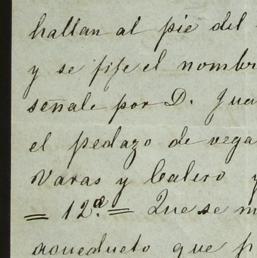 hallan al pie del
y se fife el nombr
señale por D. Jua
el pedazo de vega
Varas y Calero y
= 12.ª = Que se m
acueducto que p